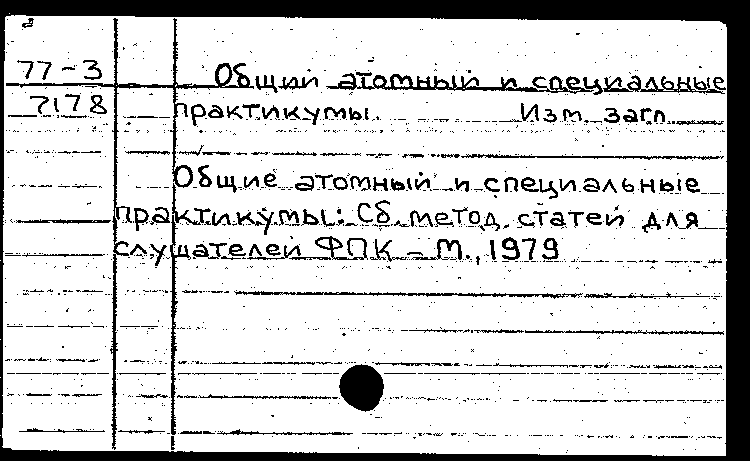 77-3 Общий атомный и специальные
7178 практикумы. Изм. загл.
Общие атомный и специальные
практикумы: Сб. метод. статей для
слушателей ФПК – М., 1979